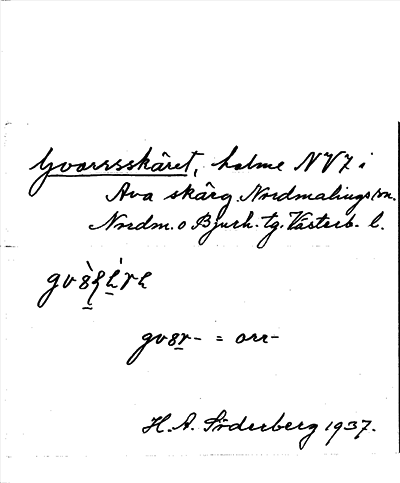 Gvorrsskäret, holme NV7 i
Ava skärg. Nordmalings sn.
Nordm. o Bjurh. tg. Västerb. l.
gvər- = orr-
H. A. Söderberg 1937.